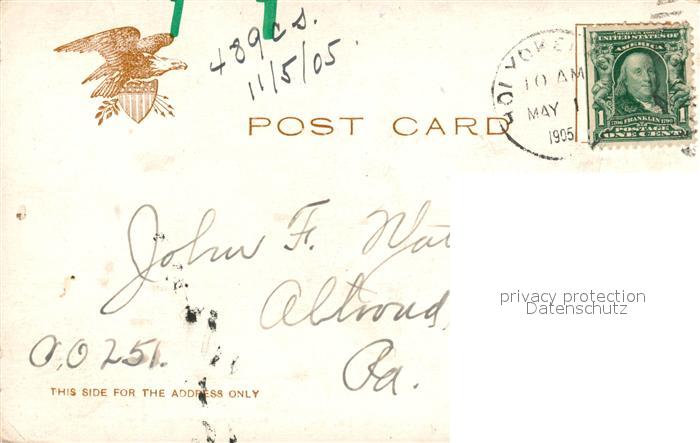 489 C S.
11/5/05.
POST CARD
HOLYOKE
10 AM
MAY 1
1905
SERIES 1902
UNITED STATES OF
AMERICA
1 1706 FRANKLIN 1790 1
POSTAGE
ONE CENT
John F.
Pa.
O.O 251.
THIS SIDE FOR THE ADDRESS ONLY
privacy protection
Datenschutz